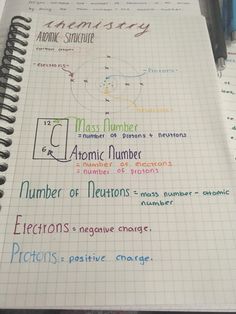 chemistry
Atomic Structure
electrons
Protons
12
C
6
Mass Number
= number of protons + neutrons
Atomic Number
= number of electrons
= number of protons
Number of Neutrons = mass number - atomic
number
Electrons = negative charge.
Protons = positive charge.